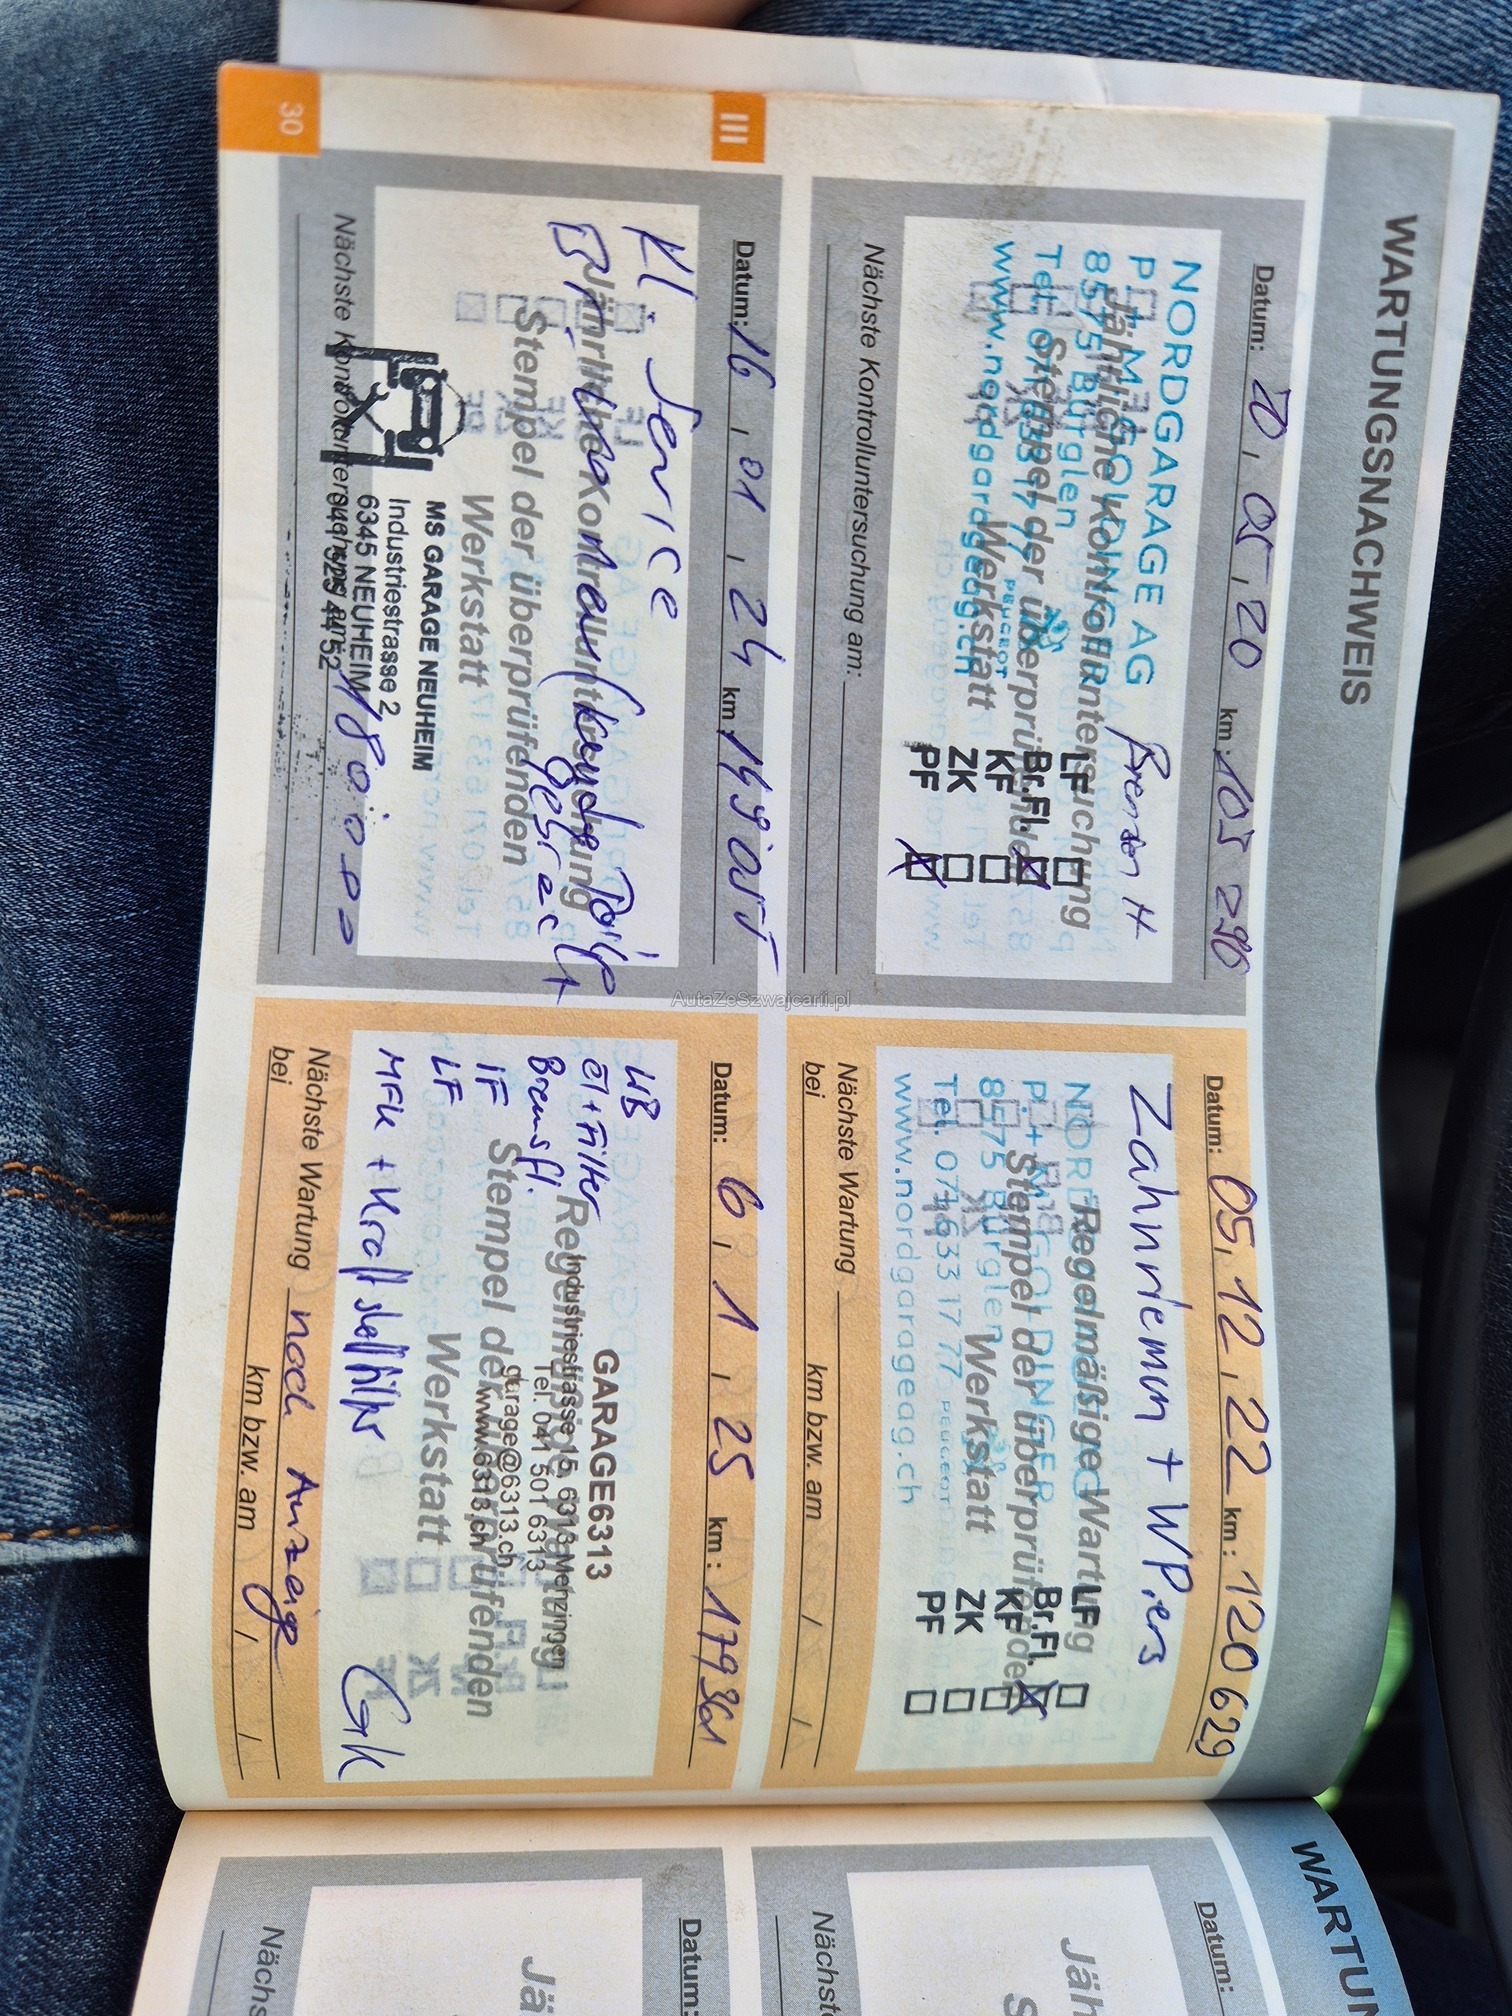 WARTUNGSNACHWEIS
Datum: 20, 05, 20 km: 105 296
NORDGARAGE AG
P. + M. GOLDINGER
8575 Bürglen
Tel. 071 633 17 77
www.nordgarageag.ch
PEUGEOT
Jährliche Kontrolluntersuchung
Stempel der überprüfenden
Werkstatt
Bremsen H
LF
Br.Fl.
KF
ZK
PF
Nächste Kontrolluntersuchung am:
Datum: 05, 12, 22 km: 120 629
Zahnriemen + WP. ers
NORDGARAGE AG
P. + M. GOLDINGER
8575 Bürglen
Tel. 071 633 17 77
www.nordgarageag.ch
PEUGEOT
Regelmäßige Wartung
Stempel der überprüfenden
Werkstatt
LF
Br.Fl.
KF
ZK
PF
Nächste Wartung
bei
km bzw. am / /
III
Datum: 16, 01, 24 km:
Kl. Service
Jährliche Kontrolluntersuchung
Stempel der überprüfenden
Werkstatt
gebracht
MS GARAGE NEUHEIM
Industriestrasse 2
6345 NEUHEIM
Nächste Kontrolluntersuchung am: 180.000
Datum: 6, 1, 25 km: 179361
WB
Öl + Filter
Bremsfl.
IF
LF
MFK + Kraftstofffilter
GARAGE6313
Industriestrasse 15, 6313 Menzingen
Tel. 041 501 6313
garage@6313.ch
www.6313.ch
Regelmäßige Wartung
Stempel der überprüfenden
Werkstatt
GK
Nächste Wartung nach Anzeige
bei
km bzw. am / /
30
AutaZeSzwajcarii.pl
WARTUN
Datum:
Jäh
S
Nächst
Datum:
Jä
Nächs